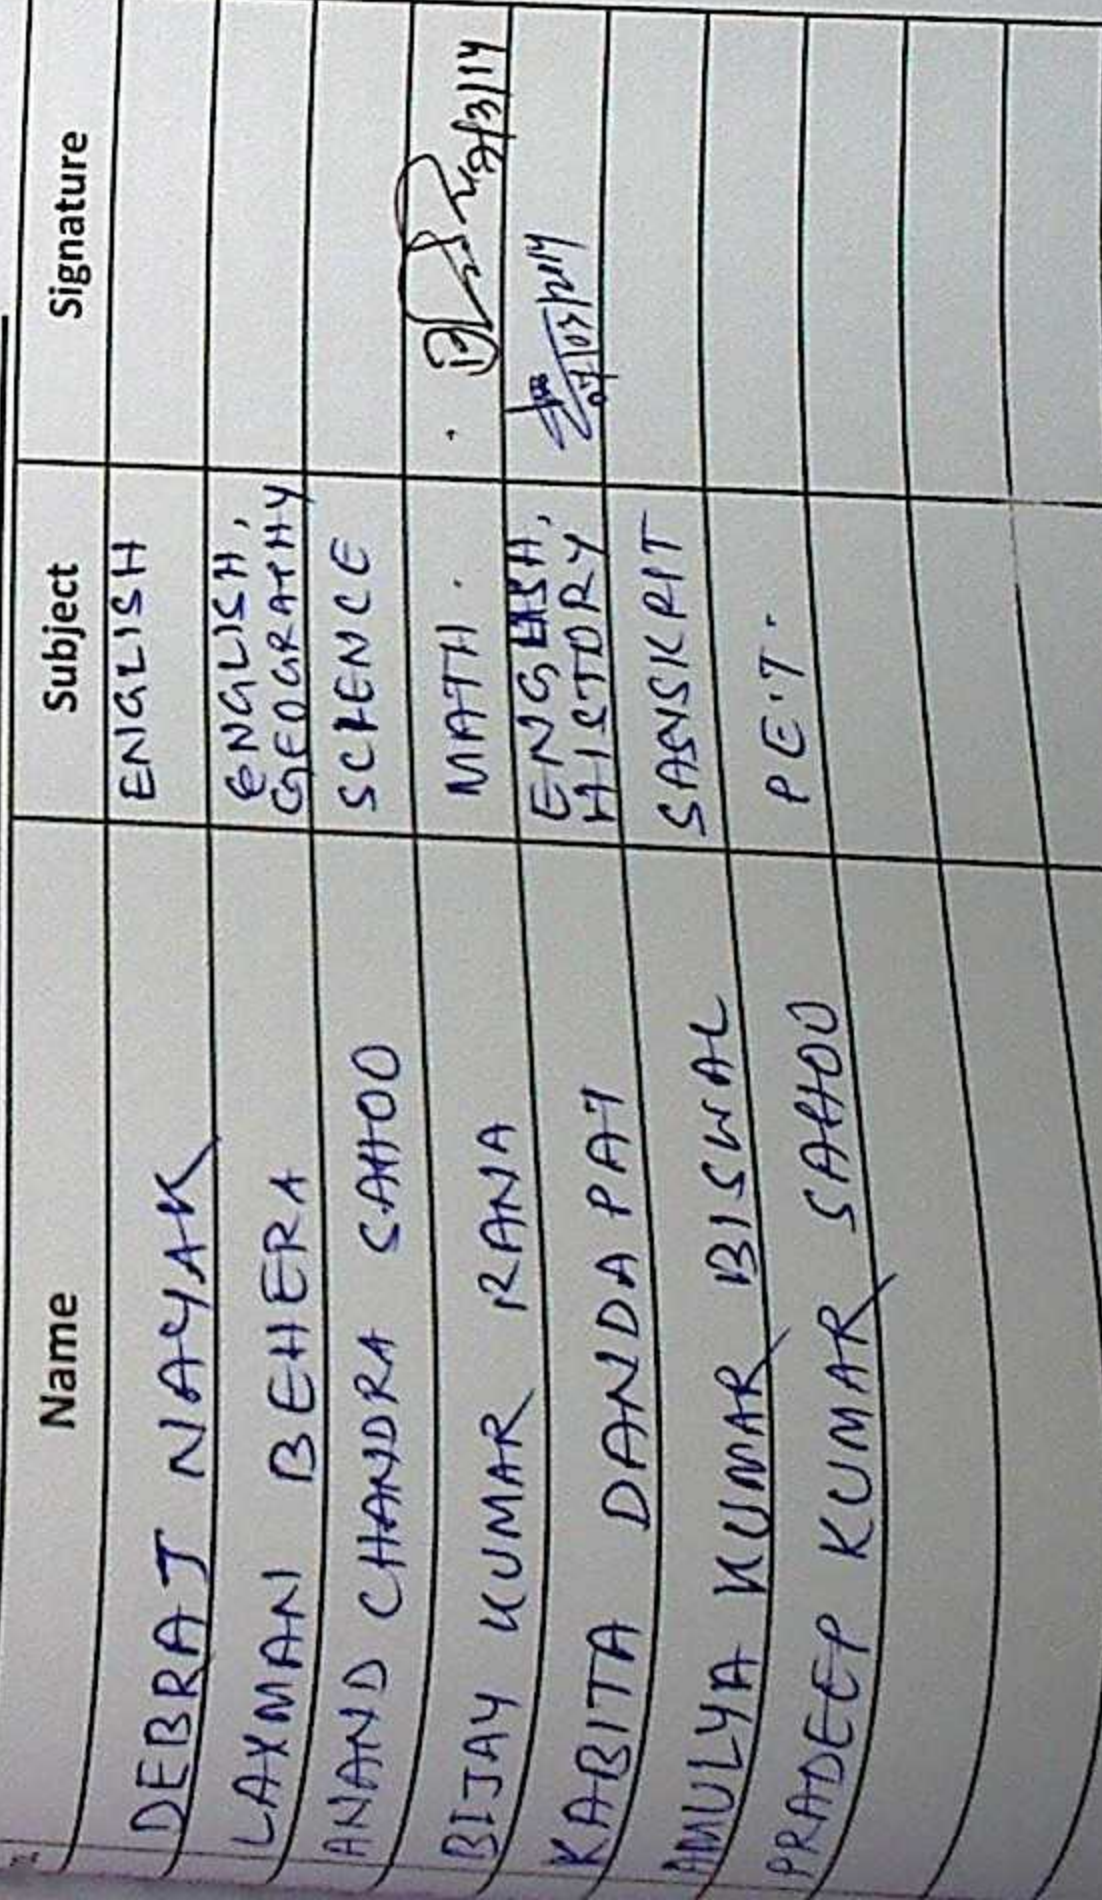 Name Subject Signature
DEBRAJ NAYAK ENGLISH
LAXMAN BEHERA ENGLISH,
GEOGRAPHY
ANAND CHANDRA SAHOO SCIENCE
BIJAY KUMAR RANA MATH. 7/3/14
KABITA DANDAPAT ENGLISH,
HISTORY 07/03/2014
AMULYA KUMAR BISWAL SANSKRIT
PRADEEP KUMAR SAHOO P.E.T.